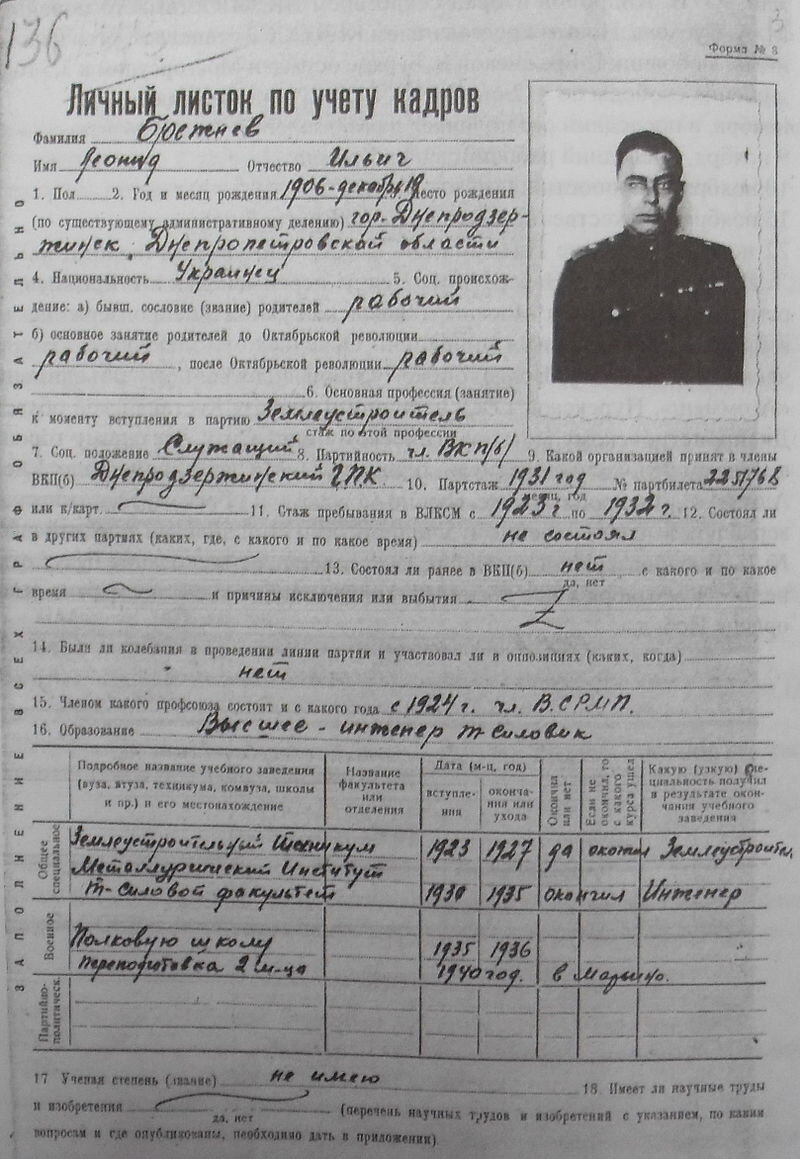 136
3
Форма № 3
Личный листок по учету кадров
Фамилия Брежнев
Имя Леонид Отчество Ильич
1. Пол 2. Год и месяц рождения 1906-декабрь 19 Место рождения
(по существующему административному делению) гор. Днепродзер-
жинск, Днепропетровской области
4. Национальность Украинец 5. Соц. происхож-
дение: а) бывш. сословие (звание) родителей рабочий
б) основное занятие родителей до Октябрьской революции
рабочий, после Октябрьской революции рабочий
6. Основная профессия (занятие)
к моменту вступления в партию Землеустроитель
стаж по этой профессии
7. Соц. положение Служащий 8. Партийность чл. ВКП/б/ 9. Какой организацией принят в члены
ВКП(б) Днепродзержинский ГПК 10. Партстаж 1931 год № партбилета
месяц, год
или к/карт. 11. Стаж пребывания в ВЛКСМ с 1923 г по 1932 г. 12. Состоял ли
в других партиях (каких, где, с какого и по какое время) не состоял
13. Состоял ли ранее в ВКП(б) нет с какого и по какое
да, нет
время и причины исключения или выбытия
14. Были ли колебания в проведении линии партии и участвовал ли в оппозициях (каких, когда)
нет
15. Членом какого профсоюза состоит и с какого года с 1924 г. чл. В.СРМП.
16. Образование Высшее - инженер т-силовик
Подробное название учебного заведения (вуза, втуза, техникума, комвуза, школы и пр.) и его местонахождение
Название факультета или отделения
Дата (м-ц, год)
вступления
окончания или ухода
Окончил или нет
Если не окончил, то с какого курса ушел
Какую (узкую) специальность получил в результате окончания учебного заведения
Общее специальное
Землеустроительный Техникум 1923 1927 да окончил
Металлургический Институт
т-силовой факультет 1930 1935 окончил Инженер
Военное
Полковую школу 1935 1936
Переподготовка 2 м-ца 1940 год.
Партийно-политическ.
17 Ученая степень (звание) не имею 18. Имеет ли научные труды
и изобретения (перечень научных трудов и изобретений с указанием, по каким
да, нет
вопросам и где опубликованы, необходимо дать в приложении).
ЗАПОЛНЕНИЕ ВСЕХ ГРАФ ОБЯЗАТЕЛЬНО